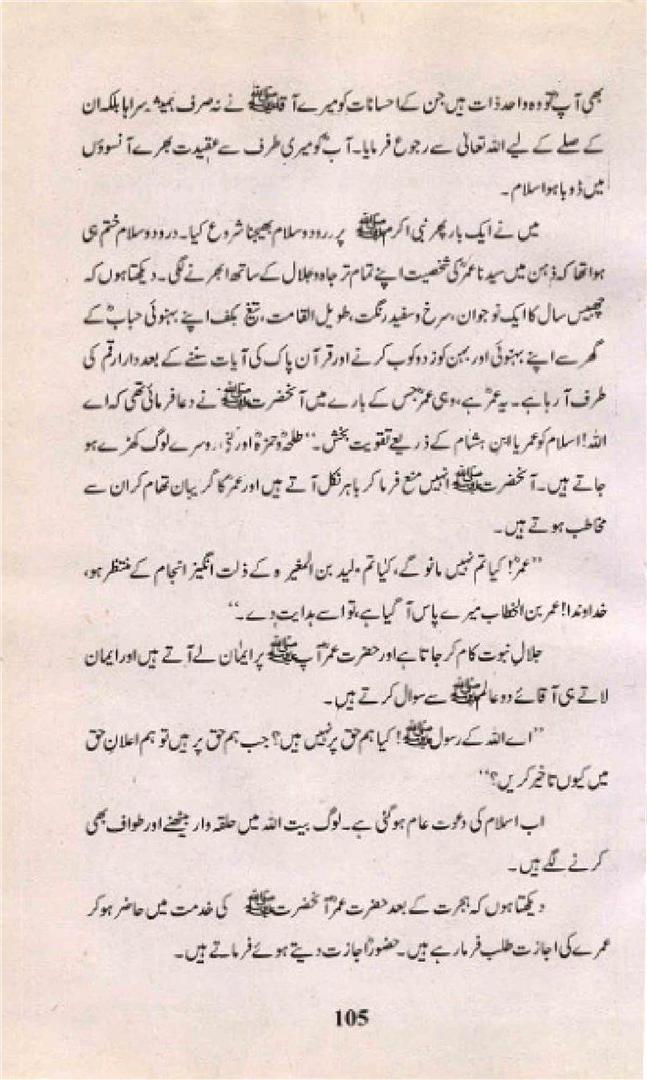 بھی آپؓ تو وہ واحد ذات ہیں جن کے احسانات کو میرے آقا ﷺ نے نہ صرف ہمیشہ سراہا بلکہ ان
کے صلے کے لیے اللہ تعالیٰ سے رجوع فرمایا۔ آپؓ کو میری طرف سے عقیدت بھرے آنسوؤں
میں ڈوبا ہوا سلام۔
میں نے ایک بار پھر نبی اکرم ﷺ پر درود و سلام بھیجنا شروع کیا۔ درود و سلام ختم ہی
ہوا تھا کہ ذہن میں سیدنا عمرؓ کی شخصیت اپنے تمام تر جاہ و جلال کے ساتھ ابھرنے لگی۔ دیکتا ہوں کہ
چھبیس سال کا ایک نوجوان، سرخ و سفید رنگت، طویل القامت، تیغ بکف اپنے بہنوئی حبابؓ کے
گھر سے اپنے بہنوئی اور بہن کو زدوکوب کرنے اور قرآن پاک کی آیات سننے کے بعد دار ارقم کی
طرف آ رہا ہے۔ یہ عمرؓ ہے، وہی عمرؓ جس کے بارے میں آنحضرت ﷺ نے دعا فرمائی تھی کہ اے
اللہ! اسلام کو عمر یا ابن ہشام کے ذریعے تقویت بخش۔‘‘ طلحہؓ و حمزہؓ اور کئی دوسرے لوگ کھڑے ہو
جاتے ہیں۔ آنحضرت ﷺ انہیں منع فرما کر باہر نکل آتے ہیں اور عمر کا گریبان تھام کر ان سے
مخاطب ہوتے ہیں۔
’’عمرؓ! کیا تم نہیں مانو گے، کیا تم ولید بن المغیرہ کے ذلت انگیز انجام کے منتظر ہو،
خداوندا! عمر بن الخطاب میرے پاس آ گیا ہے، تو اسے ہدایت دے۔‘‘
جلال نبوت کام کر جاتا ہے اور حضرت عمرؓ آپ ﷺ پر ایمان لے آتے ہیں اور ایمان
لاتے ہی آقائے دو عالم ﷺ سے سوال کرتے ہیں۔
’’اے اللہ کے رسول ﷺ! کیا ہم حق پر نہیں ہیں؟ جب ہم حق پر ہیں تو ہم اعلان حق
میں کیوں تاخیر کریں؟‘‘
اب اسلام کی دعوت عام ہو گئی ہے۔ لوگ بیت اللہ میں حلقہ وار بیٹھنے اور طواف بھی
کرنے لگے ہیں۔
دیکتا ہوں کہ ہجرت کے بعد حضرت عمرؓ آنحضرت ﷺ کی خدمت میں حاضر ہو کر
عمرے کی اجازت طلب فرما رہے ہیں۔ حضورؐ اجازت دیتے ہوئے فرماتے ہیں۔
105